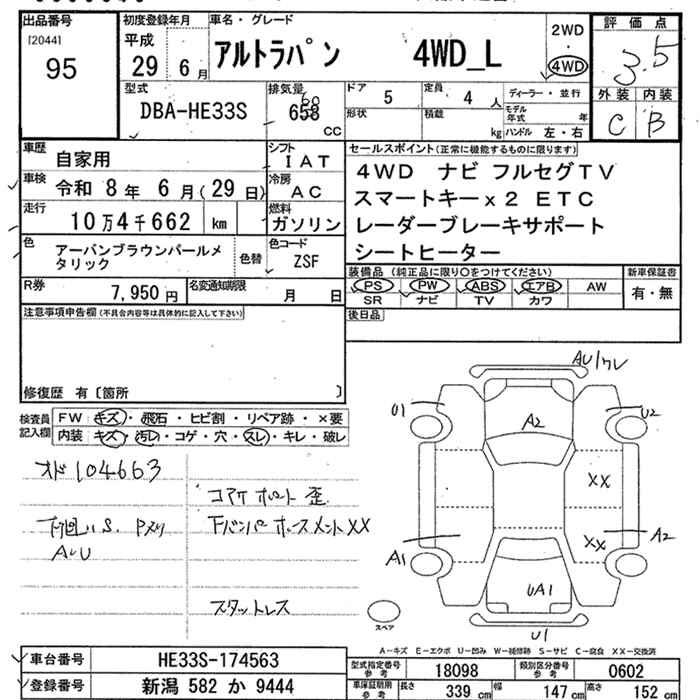 出品番号
[2044]
95
初度登録年月
平成
29年 6月
車名・グレード
アルトラパン 4WD_L
2WD
・
4WD
評価点
3.5
外装 内装
C B
型式
DBA-HE33S
排気量
658
60
CC
ドア 5
定員 4 人
形状
積載 kg
ディーラー・並行
モデル年式 年
ハンドル 左・右
車歴 自家用
シフト IAT
車検 令和 8年 6月(29日)
冷房 AC
走行 10万4千662 km
燃料 ガソリン
色 アーバンブラウンパールメタリック
色替
色コード ZSF
R券 7,950円
名変通知期限 月 日
セールスポイント(正常に機能するものに限ります)
4WD ナビ フルセグTV
スマートキーx2 ETC
レーダーブレーキサポート
シートヒーター
装備品(純正品に限り○をつけてください)
PS PW ABS エアB AW
SR ナビ TV カワ
新車保証書
有・無
後日品
注意事項申告欄(不具合内容等は具体的に記入して下さい)
修復歴 有〔箇所 〕
検査員記入欄
FW キズ・飛石・ヒビ割・リペア跡・×要
内装 キズ・汚れ・コゲ・穴・スレ・キレ・破レ
オド104663
コアサポート 歪
下廻りS. Pメリ
AU
Fバンパーホースメント XX
スタットレス
AU/ワレ
U1
U2
A2
XX
XX
A1
A2
UA1
U1
スペア
A-キズ E-エクボ U-凹み W-補修跡 S-サビ C-腐食 XX-交換済
車台番号 HE33S-174563
登録番号 新潟 582 か 9444
型式指定番号参考 18098
類別区分番号参考 0602
車体証明用参考
長さ 339 cm
幅 147 cm
高さ 152 cm